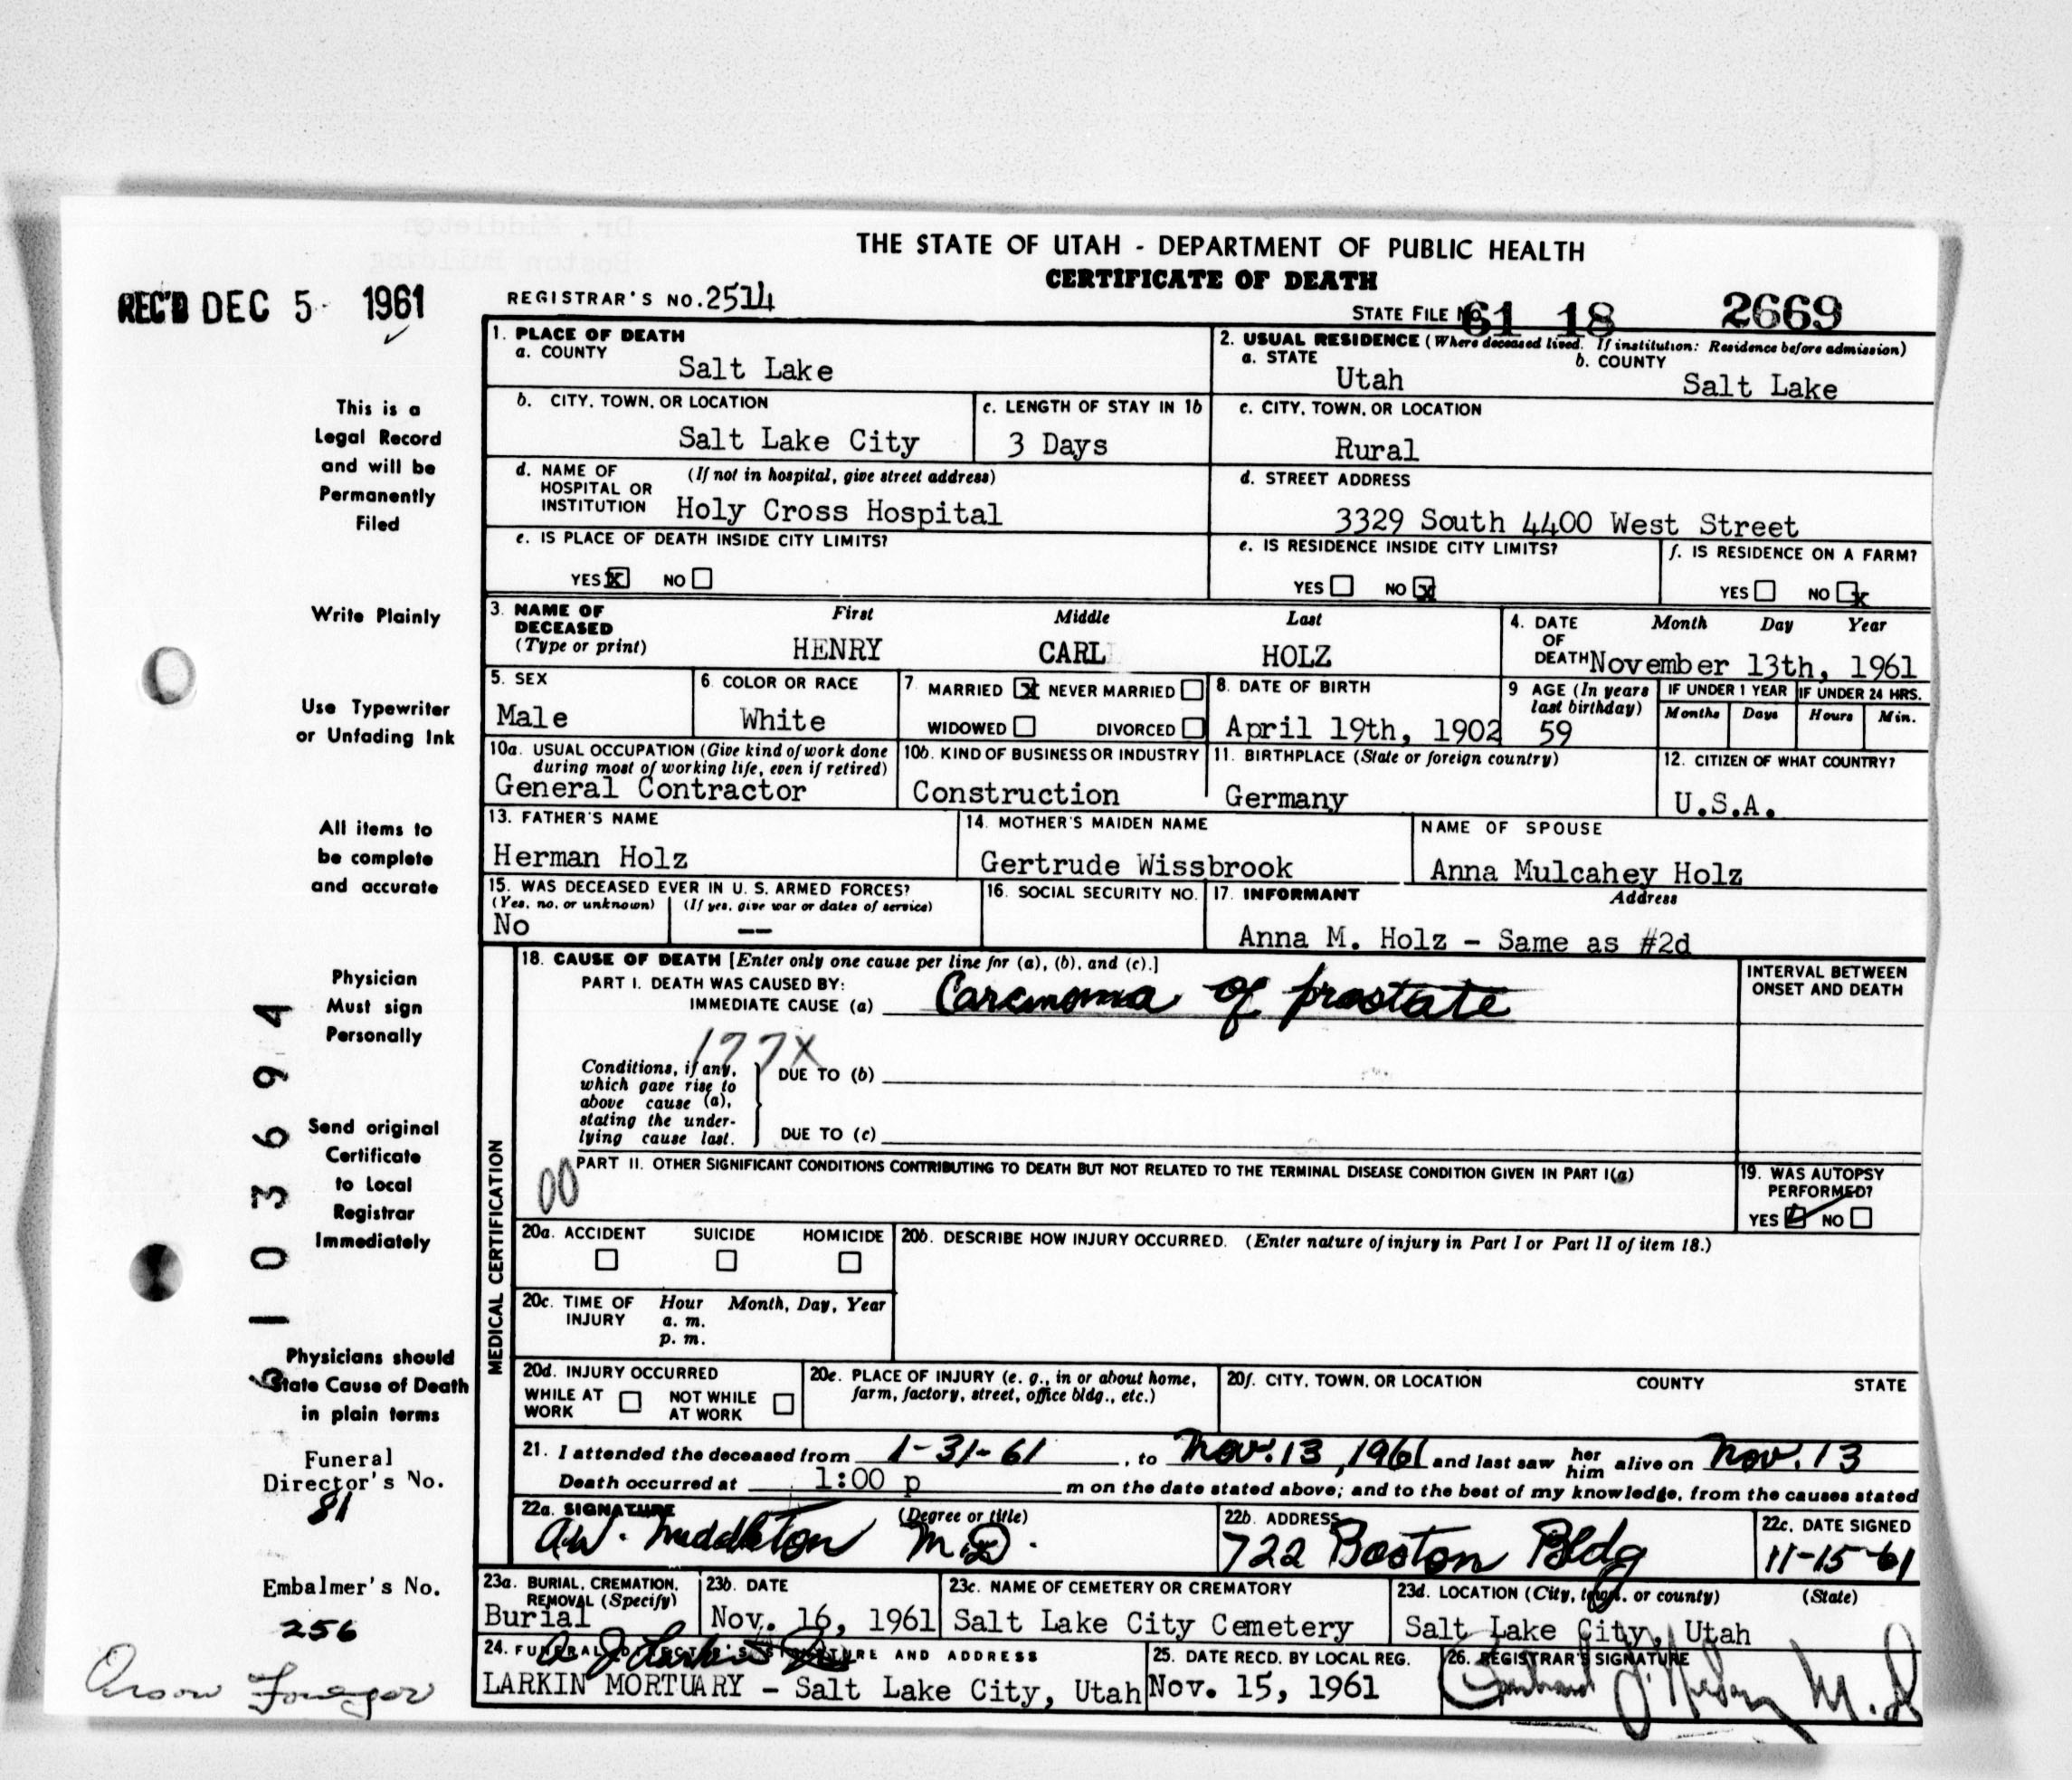 THE STATE OF UTAH - DEPARTMENT OF PUBLIC HEALTH
CERTIFICATE OF DEATH
REC'D DEC 5 1961
REGISTRAR'S NO. 2514
STATE FILE NO. 61 18 2669
1. PLACE OF DEATH
a. COUNTY
Salt Lake
2. USUAL RESIDENCE (Where deceased lived. If institution: Residence before admission)
a. STATE
Utah
b. COUNTY
Salt Lake
b. CITY, TOWN, OR LOCATION
Salt Lake City
c. LENGTH OF STAY IN 1b
3 Days
c. CITY, TOWN, OR LOCATION
Rural
d. NAME OF HOSPITAL OR INSTITUTION (If not in hospital, give street address)
Holy Cross Hospital
d. STREET ADDRESS
3329 South 4400 West Street
e. IS PLACE OF DEATH INSIDE CITY LIMITS?
YES X NO
e. IS RESIDENCE INSIDE CITY LIMITS?
YES NO X
f. IS RESIDENCE ON A FARM?
YES NO X
3. NAME OF DECEASED (Type or print)
First Middle Last
HENRY CARL HOLZ
4. DATE OF DEATH
Month Day Year
November 13th, 1961
5. SEX
Male
6. COLOR OR RACE
White
7. MARRIED X NEVER MARRIED
WIDOWED DIVORCED
8. DATE OF BIRTH
April 19th, 1902
9 AGE (In years last birthday)
59
IF UNDER 1 YEAR
Months Days
IF UNDER 24 HRS.
Hours Min.
10a. USUAL OCCUPATION (Give kind of work done during most of working life, even if retired)
General Contractor
10b. KIND OF BUSINESS OR INDUSTRY
Construction
11. BIRTHPLACE (State or foreign country)
Germany
12. CITIZEN OF WHAT COUNTRY?
U.S.A.
13. FATHER'S NAME
Herman Holz
14. MOTHER'S MAIDEN NAME
Gertrude Wissbrook
NAME OF SPOUSE
Anna Mulcahey Holz
15. WAS DECEASED EVER IN U. S. ARMED FORCES?
(Yes, no, or unknown) (If yes, give war or dates of service)
No --
16. SOCIAL SECURITY NO.
17. INFORMANT Address
Anna M. Holz - Same as #2d
MEDICAL CERTIFICATION
18. CAUSE OF DEATH [Enter only one cause per line for (a), (b), and (c).]
PART I. DEATH WAS CAUSED BY:
IMMEDIATE CAUSE (a) Carcinoma of prostate
177X
Conditions, if any, which gave rise to above cause (a), stating the underlying cause last.
DUE TO (b)
DUE TO (c)
INTERVAL BETWEEN ONSET AND DEATH
PART II. OTHER SIGNIFICANT CONDITIONS CONTRIBUTING TO DEATH BUT NOT RELATED TO THE TERMINAL DISEASE CONDITION GIVEN IN PART I(a)
00
19. WAS AUTOPSY PERFORMED?
YES NO
20a. ACCIDENT SUICIDE HOMICIDE
20b. DESCRIBE HOW INJURY OCCURRED. (Enter nature of injury in Part I or Part II of item 18.)
20c. TIME OF INJURY
Hour Month, Day, Year
a. m.
p. m.
20d. INJURY OCCURRED
WHILE AT WORK NOT WHILE AT WORK
20e. PLACE OF INJURY (e. g., in or about home, farm, factory, street, office bldg., etc.)
20f. CITY, TOWN, OR LOCATION COUNTY STATE
21. I attended the deceased from 1-31-61, to Nov. 13, 1961 and last saw her him alive on Nov. 13
Death occurred at 1:00 p m on the date stated above; and to the best of my knowledge, from the causes stated
22a. SIGNATURE (Degree or title)
A.W. Middleton M.D.
22b. ADDRESS
722 Boston Bldg
22c. DATE SIGNED
11-15-61
23a. BURIAL, CREMATION, REMOVAL (Specify)
Burial
23b. DATE
Nov. 16, 1961
23c. NAME OF CEMETERY OR CREMATORY
Salt Lake City Cemetery
23d. LOCATION (City, town, or county) (State)
Salt Lake City, Utah
24. FUNERAL DIRECTOR'S SIGNATURE AND ADDRESS
LARKIN MORTUARY - Salt Lake City, Utah
25. DATE RECD. BY LOCAL REG.
Nov. 15, 1961
26. REGISTRAR'S SIGNATURE
M.D
This is a
Legal Record
and will be
Permanently
Filed
Write Plainly
Use Typewriter
or Unfading Ink
All items to
be complete
and accurate
Physician
Must sign
Personally
Send original
Certificate
to Local
Registrar
Immediately
Physicians should
State Cause of Death
in plain terms
Funeral
Director's No.
81
Embalmer's No.
256
Orson
103694
Dr. Middleton
Boston Building